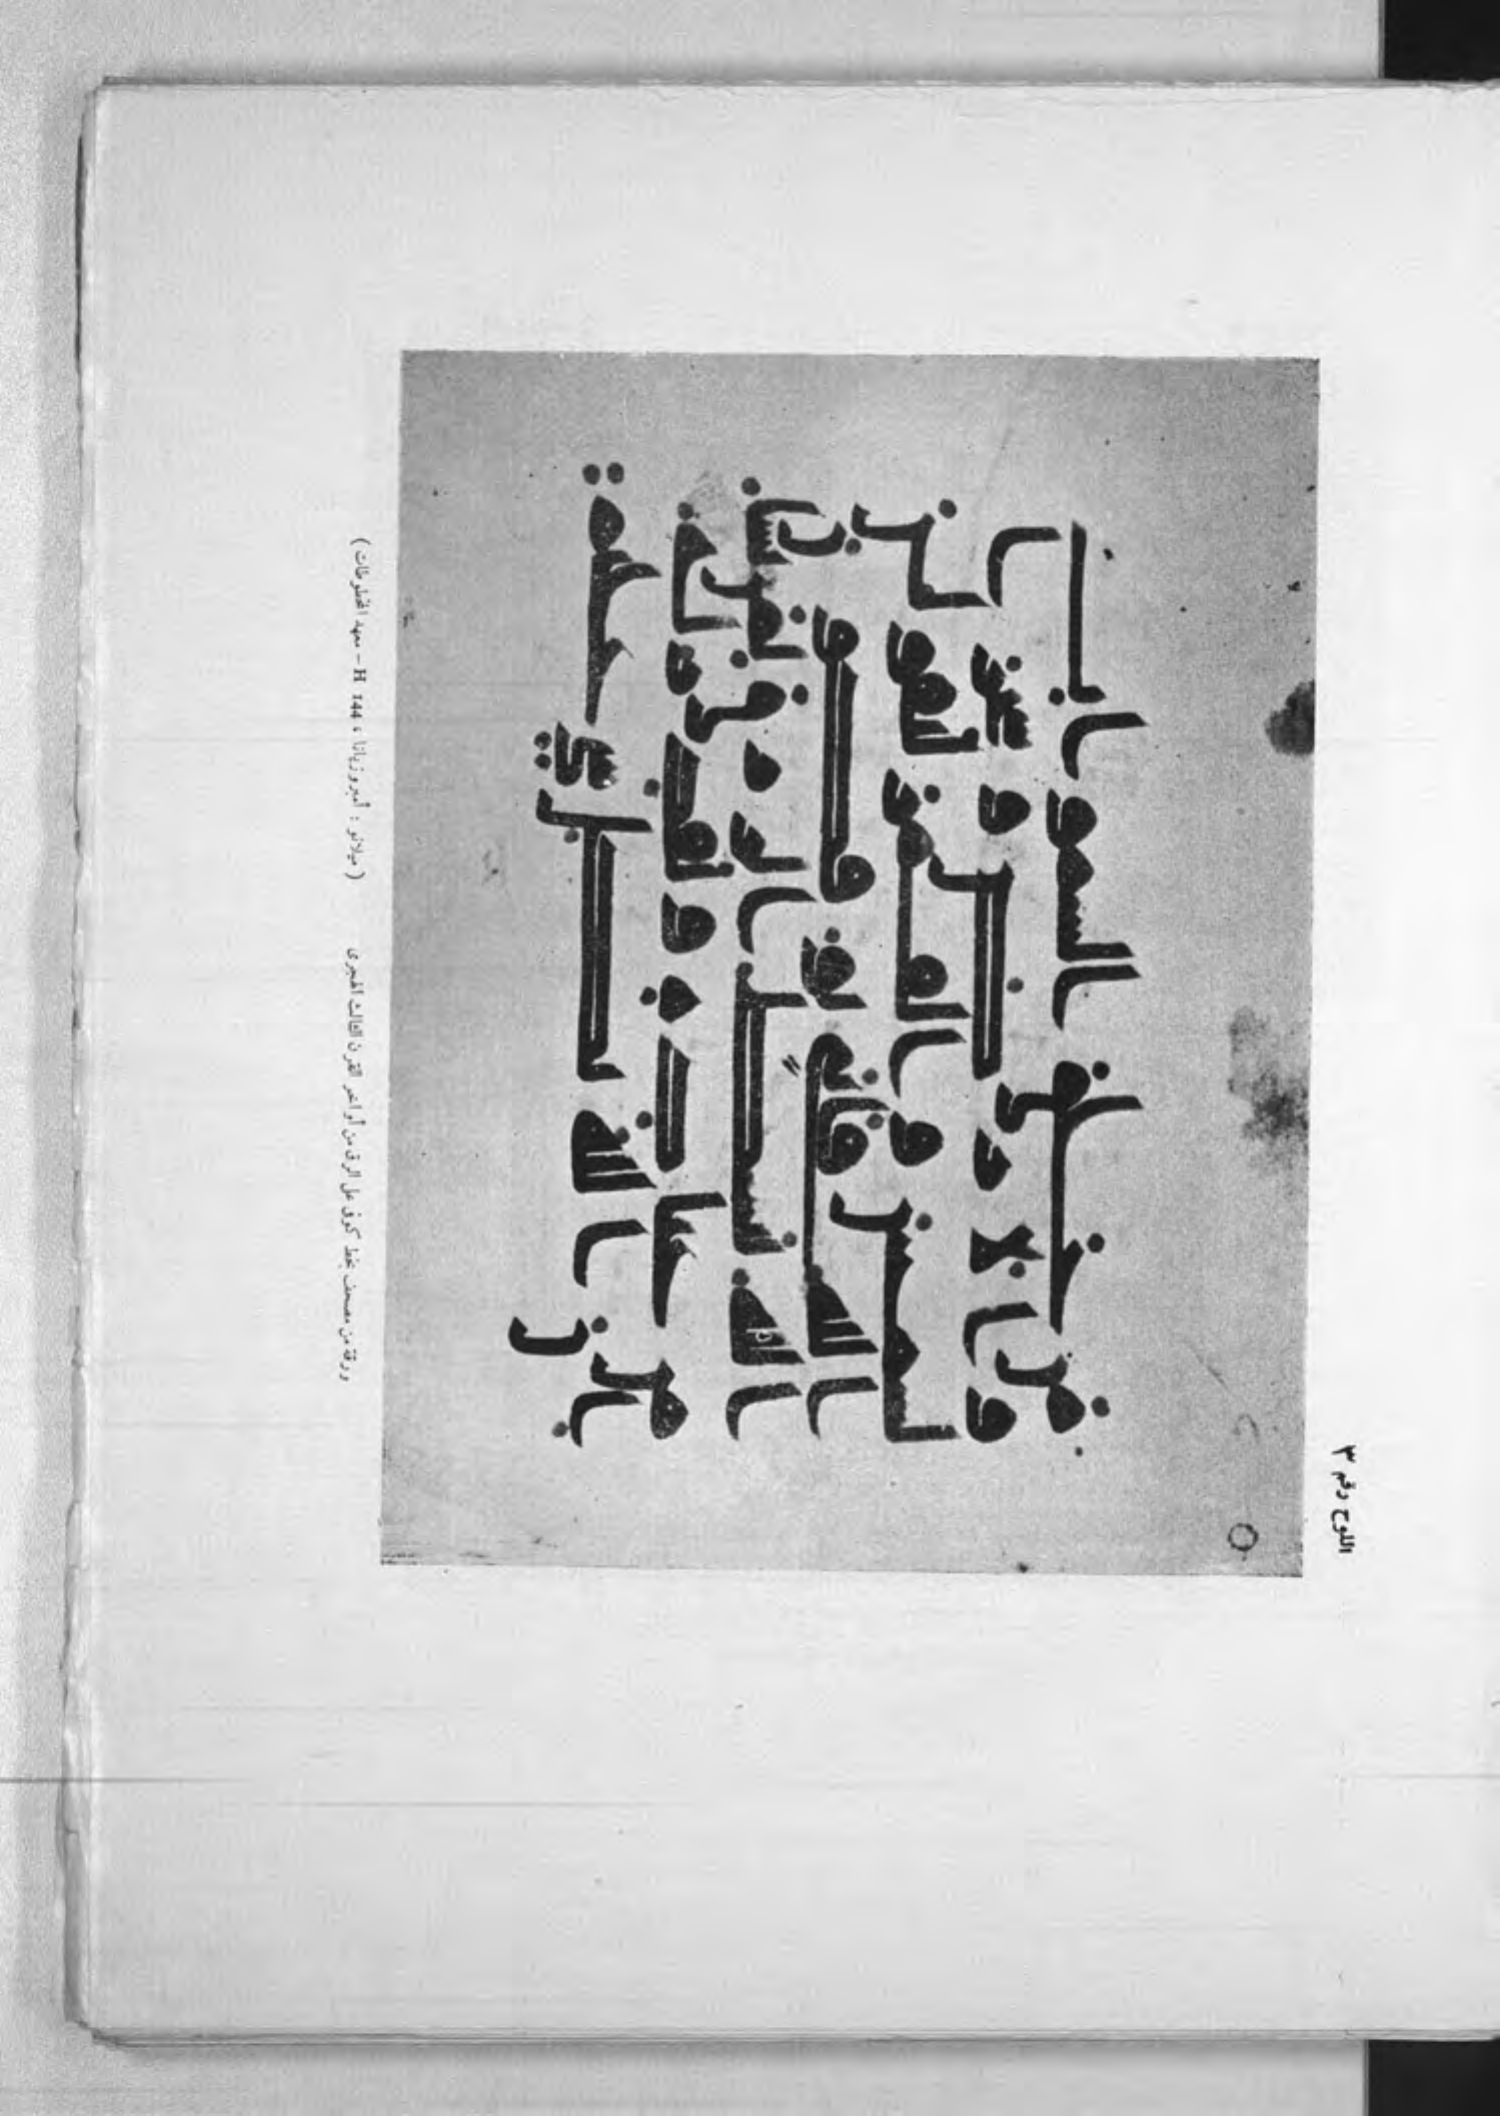 اللوح رقم ٣
من خلق السموات
والارض وسخر ا
لشمس والقمر ليقولن
الله فانى يوفكون
الله يبسط الرزق لمن يشا
من عباده ويقدر له
ان الله بكل شي عليم
ورقة من مصحف بخط كوفى على الرق من أواخر القرن الثالث الهجرى ( ميلانو : أمبروزيانا ، H 144 – معهد المخطوطات )